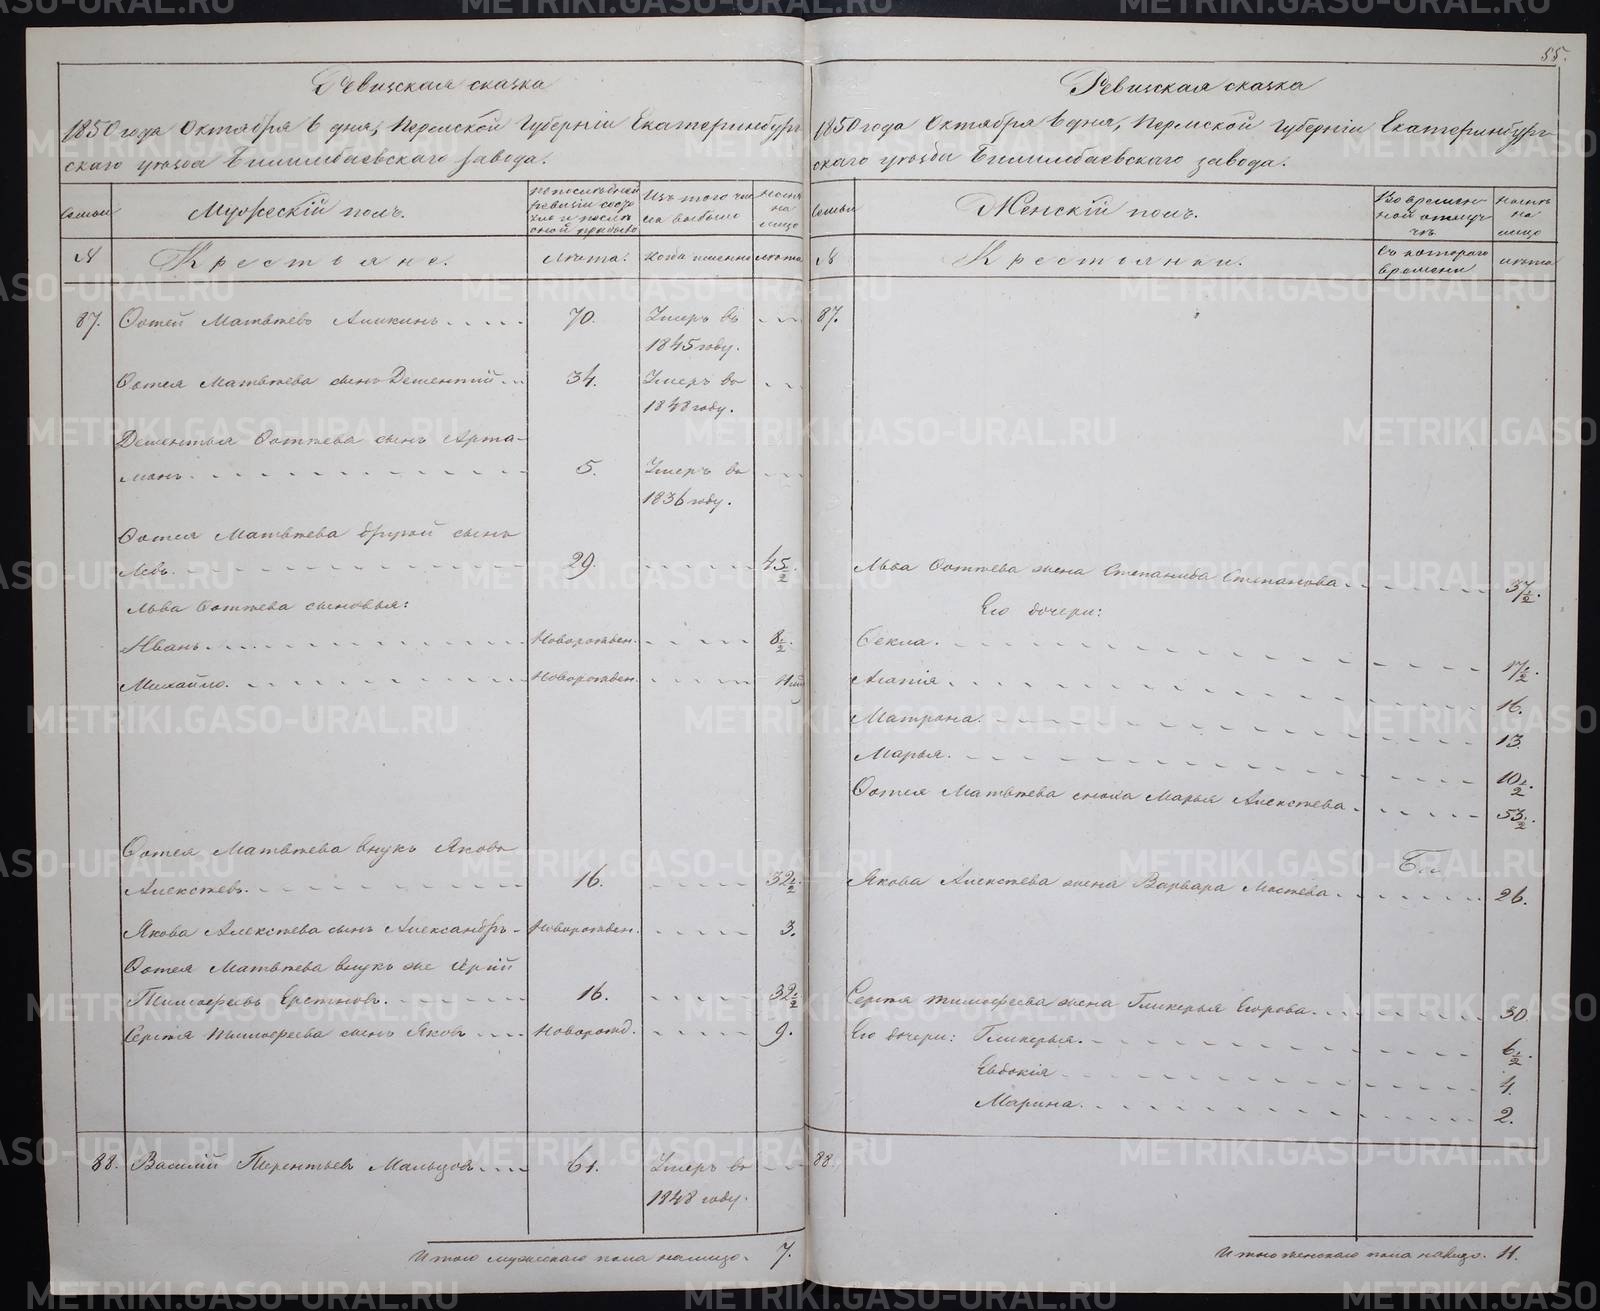 55.
Ревизская сказка
1850 года Октября 6 дня, Пермской Губерніи Екатеринбург-
скаго уѣзда Билимбаевскаго завода.
Семьи
Мужескій полъ.
По послѣдней ревизіи состояло и послѣ оной прибыло
Изъ того числа выбыло
Нынѣ на лицо
№
Крестьяне.
Лѣта.
Когда именно
лѣта
87. Фотей Матвѣевъ Аликинъ 70. Умеръ въ
1845 году.
Фотея Матвѣева сынъ Дементій 34. Умеръ въ
1848 году.
Дементья Фотѣева сынъ Арта-
монъ. 5. Умеръ въ
1836 году.
Фотея Матвѣева другой сынъ
Левъ. 29. 45 1/2.
Льва Фотѣева сыновья:
Иванъ. Новорожден. 8 1/2.
Михайло. Новорожден.
Фотея Матвѣева внукъ Яковъ
Алексѣевъ. 16. 32 1/2.
Якова Алексѣева сынъ Александръ Новорожден. 3.
Фотея Матвѣева внукъ же
Тимофеевъ 16. 32 1/2
Сергѣя Тимофеева сынъ Яковъ Новорожд. 9.
88. Василій Терентьевъ Мальцовъ 61. Умеръ въ
1848 году.
Итого мужескаго пола налицо. 7.
Ревизская сказка
1850 года Октября 6 дня, Пермской Губерніи Екатеринбург-
скаго уѣзда Билимбаевскаго завода.
Семьи
Женскій полъ.
Во временной отлучкѣ
Нынѣ на лицо
№
Крестьянки.
Съ котораго времени
лѣта
87.
Льва Фотѣева жена Степанида Степанова. 37 1/2.
Его дочери:
Фекла. 17 1/2.
Агапія. 16.
Матрона. 13.
Марья. 10 1/2.
Фотея Матвѣева сноха Марья Алексѣева 53 1/2.
Якова Алексѣева жена Варвара 26.
Сергѣя Тимофеева жена Гликерья Егорова. 30.
Его дочери: Гликерья. 6 1/2.
Евдокія 4.
Марина. 2.
88.
Итого женскаго пола налицо. 11.
METRIKI.GASO-URAL.RU